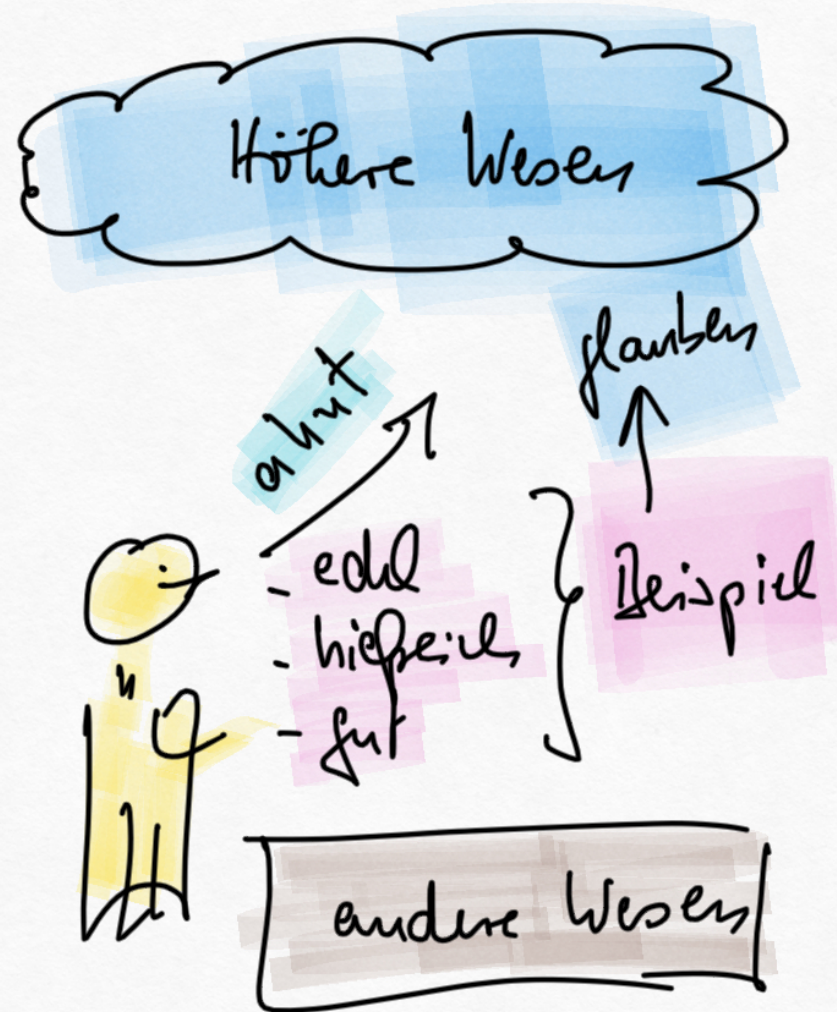 Höhere Wesen
ahnt
glauben
- edel
- hilfreich
- gut
Beispiel
andere Wesen